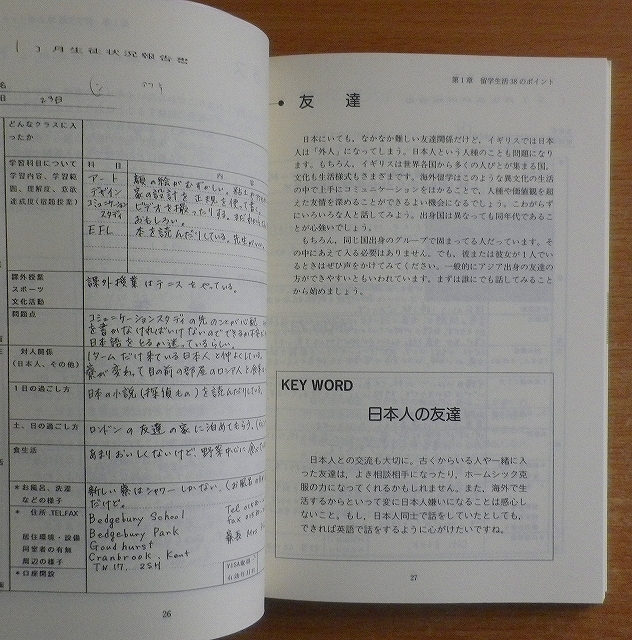 ( )月生徒状況報告書
名
日 23日
どんなクラスに入
ったか
学習科目について
学習内容、学習範
囲、理解度、意欲
達成度(宿題授業)
科 目
内 容
アート
デザイン
コミュニケーション
スタディ
おもしろい。
EFL
課外授業
スポーツ
文化活動
課外授業はテニスをやっている。
問題点
コミュニケーションスタディの先のことが心配
を書かなければいけないので
日本語をとるか迷っているらしい。
対人関係
(日本人、その他)
1タームだけ来ている日本人と仲よくしている。
寮が変わって目の前の部屋のロシア人と食事
1日の過ごし方
日本の小説(探偵もの)を読んだりしている。
土、日の過ごし方
ロンドンの友達の家に泊めてもらう。
食生活
あまりおいしくないけど、野菜中心に食べて
*お風呂、洗濯
などの様子
新しい寮はシャワーしかない。(お風呂
だけど。
* 住所.TEL.FAX
居住環境・設備
同室者の有無
周辺の様子
Bedgebury School
Bedgebury Park
Goudhurst
Cranbrook, Kent
TN17. 2SH
*口座開設
26
第1章 留学生活38のポイント
友 達
日本にいても、なかなか難しい友達関係だけど、イギリスでは日本
人は「外人」になってしまう。日本人という人種のことも問題になり
ます。もちろん、イギリスは世界各国から多くの人びとが集まる国。
文化も生活様式もさまざまです。海外留学はこのような異文化の生活
の中で上手にコミュニケーションをはかることで、人種や価値観を超
えた友情を深めることができるよい機会になるでしょう。こわがらず
にいろいろな人と話してみよう。出身国は異なっても同年代であるこ
とが心強いでしょう。
もちろん、同じ国出身のグループで固まってる人だっています。そ
の中にあえて入る必要はありません。でも、彼または彼女が1人でい
るときはぜひ声をかけてみてください。一般的にアジア出身の友達の
方ができやすいともいわれています。まずは誰にでも話してみること
から始めましょう。
KEY WORD
日本人の友達
日本人との交流も大切に。古くからいる人や一緒に入
った友達は、よき相談相手になったり、ホームシック克
服の力になってくれるかもしれません。また、海外で生
活するからといって変に日本人嫌いになることは感心し
ないこと。もし、日本人同士で話をしていたとしても、
できれば英語で話をするように心がけたいですね。
27